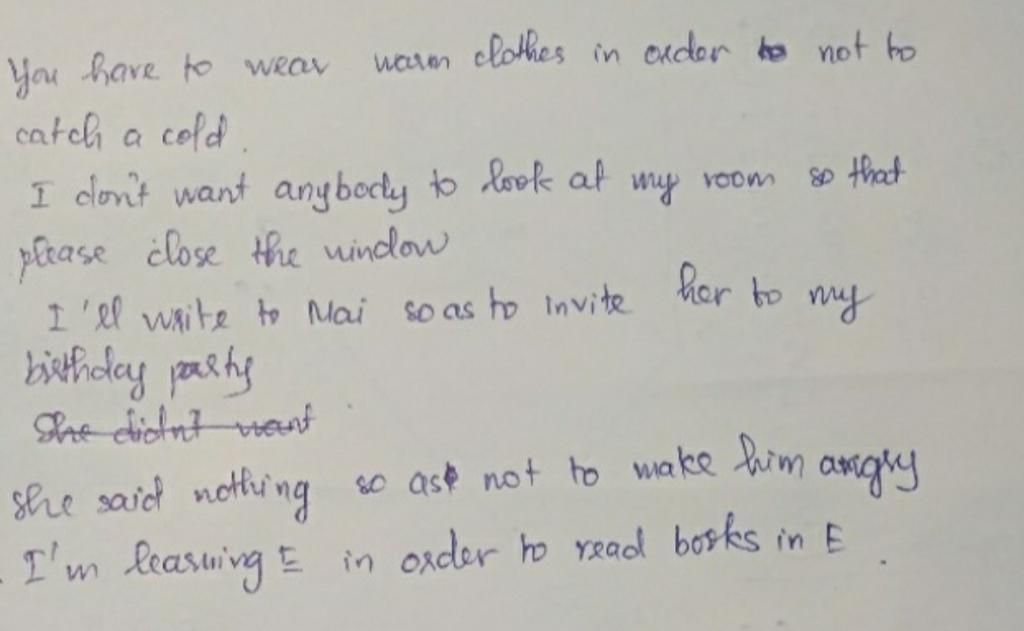 You have to wear warm clothes in order to not to
catch a cold.
I don't want anybody to look at my room so that
please close the window
I'll write to Mai so as to invite her to my
birthday party
She didn't want
She said nothing so as not to make him angry
I'm learning E in order to read books in E.